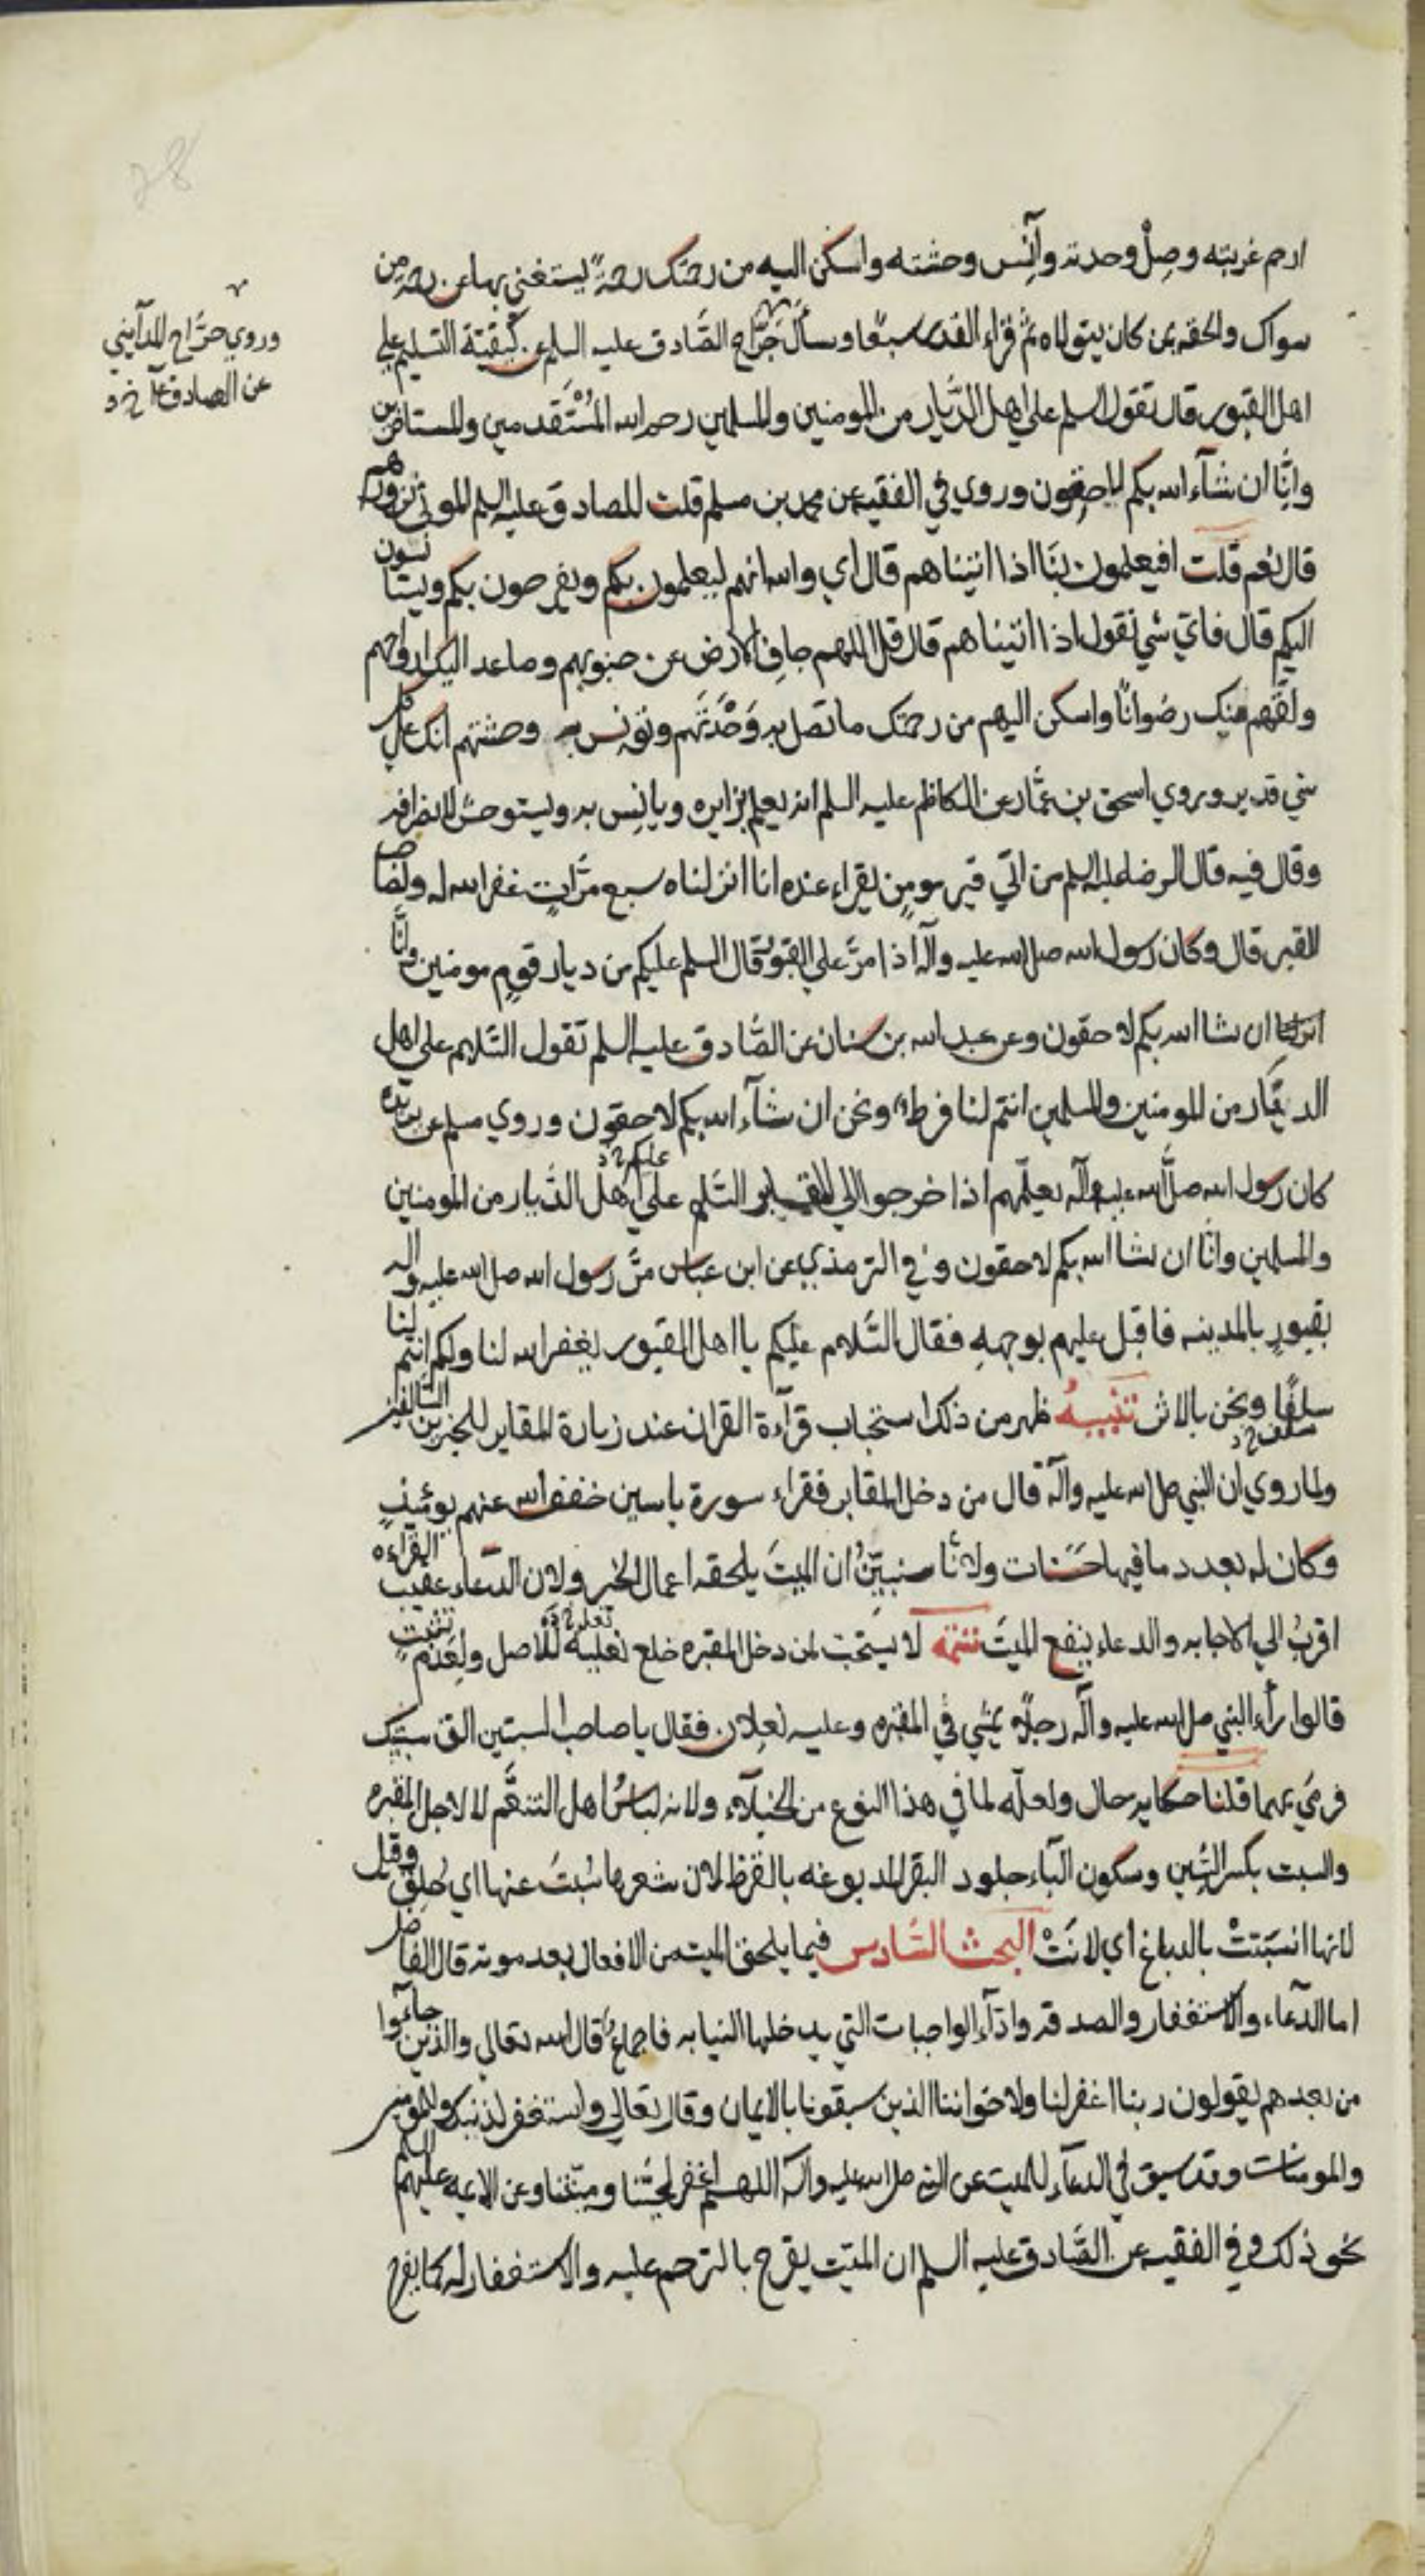 ارحم غربته وصِلْ وحدته وآنِس وحشته واسكن اليه من رحمتك رحمةً يستغني بها عن رحمة من
سواك والحقه بمن كان يتولاه ثم قراء القدر سبعًا وسأل جَرَّاح الصَّادق عليه السلم عن كيفيّة التسليم علي
اهل القبور قال تقول السلم علي اهل الدِّيار من المومنين والمسلمين رحم الله المُسْتَقدمين والمستاخرين
وانَّا ان شآء الله بكم لاحقون وروي في الفقيه عن محمد بن مسلم قلت للصادق عليه السلم الموتي نزورهم
قال نعم قلت افيعلمون بنَا اذا اتيناهم قال اي والله انهم ليعلمون بكم ويفرحون بكم ويستانسون
اليكم قال فايّ شي نقول اذا اتيناهم قال قل اللهم جافِ الارض عن جنوبهم وصاعد اليك ارواحهم
ولقهم منك رضوانًا واسكن اليهم من رحمتك ما تصل به وَحْدَتَهم وتونس به وحشتهم انك علي كل
شي قدير وروي اسحق بن عمَّار عن الكاظم عليه السلم انه يعلم بزايره ويانِس به ويستوحش لانصرافه
وقال فيه قال الرضا عليه السلم من اتي قبر مومنٍ يقراء عنده انا انزلناه سبع مرَّاتٍ غفر الله له ولصاحب
القبر قال وكان رسول الله صل الله عليه وآله اذا مرَّ علي القبور قال السلم عليكم من ديار قومٍ مومنين وانَّا
ان شا الله بكم لاحقون وعن عبد الله بن سنان عن الصَّادق عليه السلم تقول السَّلام علي اهل
الديَّار من المومنين والمسلمين انتم لنا فرط ونحن ان شآء الله بكم لاحقون وروي مسلم عن بريدة
كان رسول الله صلَّ الله عليه وآله يعلّمهم اذا خرجوا الي المقابر السَّلم عليكم خ د علي اهل الدِّيار من المومنين
والمسلمين وانَّا ان شا الله بكم لاحقون وفي الترمذي عن ابن عباس مرَّ رسول الله صل الله عليه وآله
بقبورٍ بالمدينه فاقبل عليهم بوجههِ فقال السَّلام عليكم يا اهل القبور يغفر الله لنا ولكم انتم لنا
سلفًا سلف خ د ونحن بالاثر تنبيهُ ظهر من ذلك استحباب قرآءة القران عند زيارة المقابر للخبرين السَّالفين
ولما روي ان النبي صل الله عليه وآله قال من دخل المقابر فقراء سورة ياسين خفف الله عنهم يومئذٍ
وكان له بعدد ما فيها حَسَنات ولانَّا سنبيّنُ ان الميتَ يلحقه اعمال الخير ولان الدّعاء عقيب القراءه
اقربُ الي الاجابه والدعاء ينفع الميتَ تتمّه لا يستحبّ لمن دخل المقبره خلع نعليه نعله خ ده للاصل ولعَدَم تثبتٍ
قالوا رأء النبي صل الله عليه وآله رجلًا يمشي في المقبره وعليه نعلان فقال يا صاحب السبتين الق سبتيك
فرمَي بهما قلنا حكايه حال ولعلّه لما في هذا النوع من الخيلآء ولانه لباسُ اهل التنعُّم لا لاجل المقبره
والسبت بكسر السِّين وسكون البآء جلود البقر المدبوغه بالقرظ لان شعرها سُبتَ عنها اي حُلِقَ وقيل
لانها انسَبَتتْ بالدباغ اي لانَتْ البَحث السَّادس فيما يلحق الميت من الافعال بعد موته قال الفاضل
اما الدّعاء والاستغفار والصدقه واداء الواجبات التي يدخلها النيابه فاجماع قال الله تعالي والذين جاءوا
من بعدهم يقولون ربنا اغفر لنا ولاخواننا الذين سبقونا بالايمان وقال تعالي واستغفر لذنبك وللمومنين
والمومنات وقد سبق في الدعآء للميت عن النبي صل الله عليه وآله اللهم اغفر لحيّنا وميّتنا وعن الايمه عليهم السلم
نحو ذلك وفي الفقيه عن الصَّادق عليه السلم ان الميّت يفرح بالترحم عليه والاستغفار له كما يفرح
وروي جرَّاح المدآيني
عن الصادق عا خ د
28